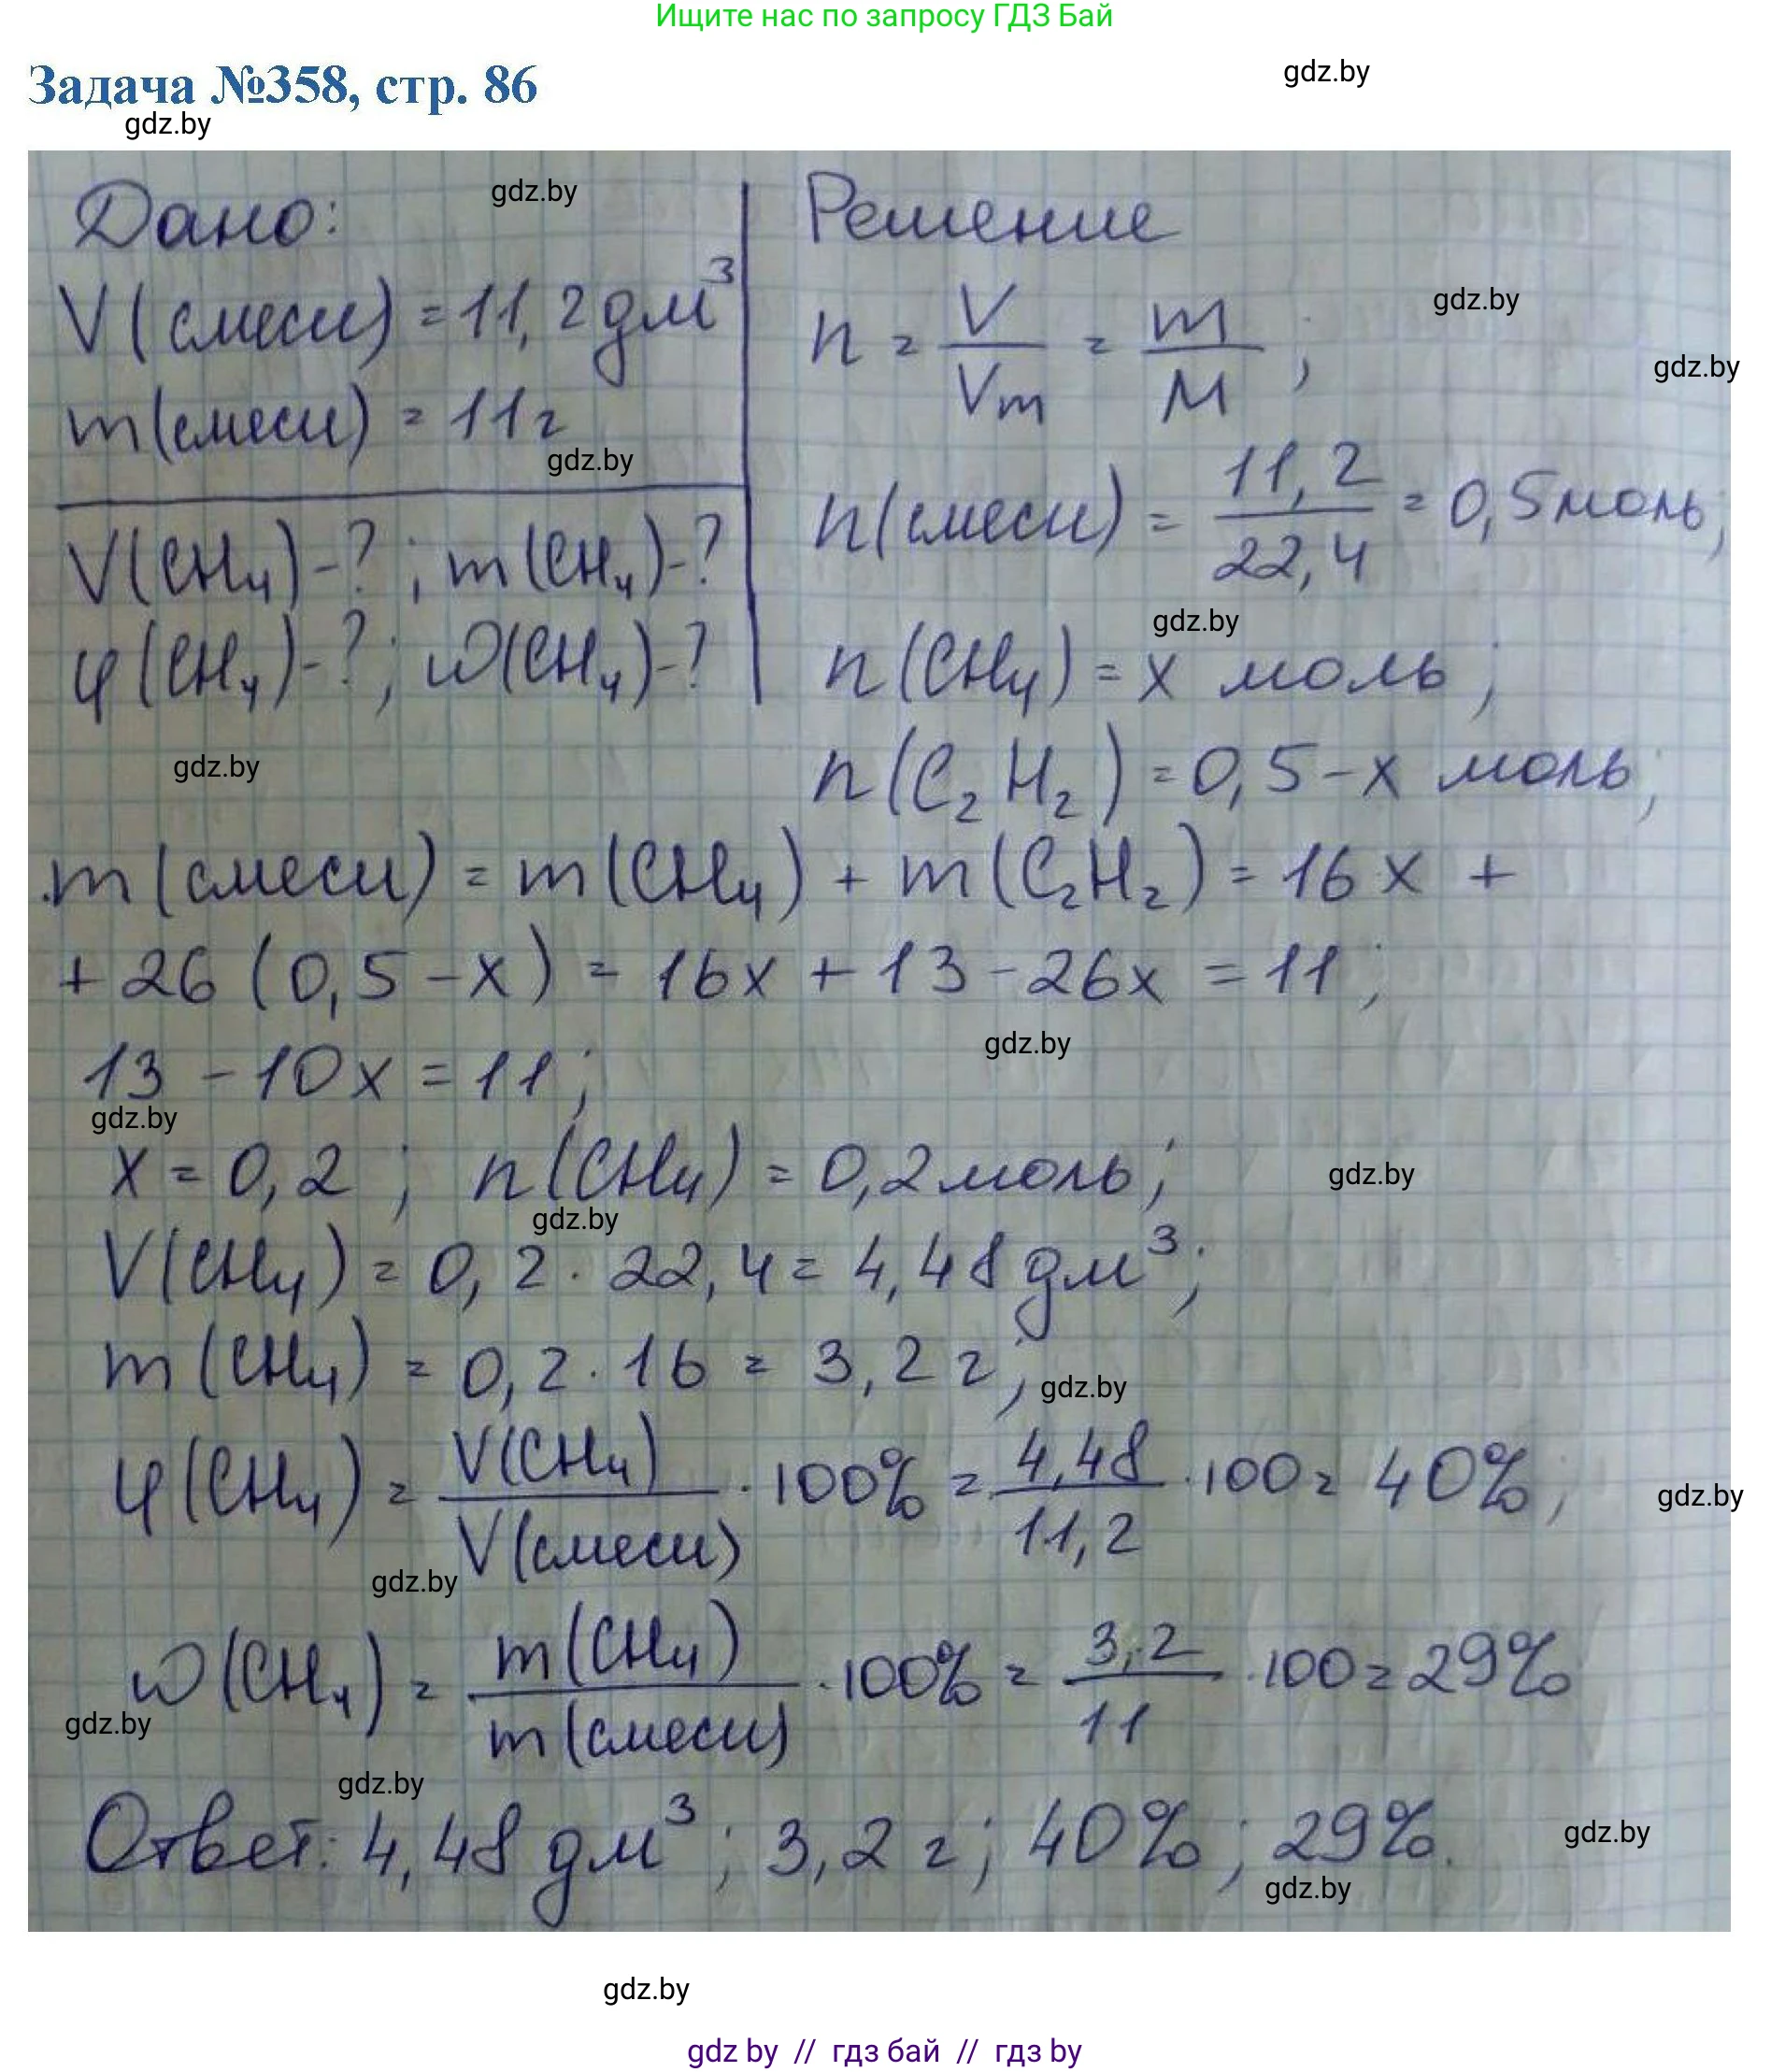 Ищите нас по запросу ГДЗ Бай
Задача №358, стр. 86
gdz.by
gdz.by
Дано:
gdz.by
Решение
V(смеси) = 11,2 дм³
n = V/Vm = m/M;
gdz.by
gdz.by
m(смеси) = 11 г
gdz.by
n(смеси) = 11,2/22,4 = 0,5 моль;
V(CH₄)-?; m(CH₄)-?
gdz.by
φ(CH₄)-?; ω(CH₄)-?
n(CH₄) = x моль;
gdz.by
n(C₂H₂) = 0,5-x моль;
m(смеси) = m(CH₄) + m(C₂H₂) = 16x +
+ 26(0,5-x) = 16x + 13 - 26x = 11;
gdz.by
13 - 10x = 11;
gdz.by
x = 0,2; n(CH₄) = 0,2 моль;
gdz.by
gdz.by
V(CH₄) = 0,2 · 22,4 = 4,48 дм³;
m(CH₄) = 0,2 · 16 = 3,2 г;
gdz.by
φ(CH₄) = V(CH₄)/V(смеси) · 100% = 4,48/11,2 · 100 = 40%;
gdz.by
gdz.by
ω(CH₄) = m(CH₄)/m(смеси) · 100% = 3,2/11 · 100 = 29%
gdz.by
gdz.by
Ответ: 4,48 дм³; 3,2 г; 40%; 29%.
gdz.by
gdz.by
gdz.by
gdz by // гдз бай // гдз by